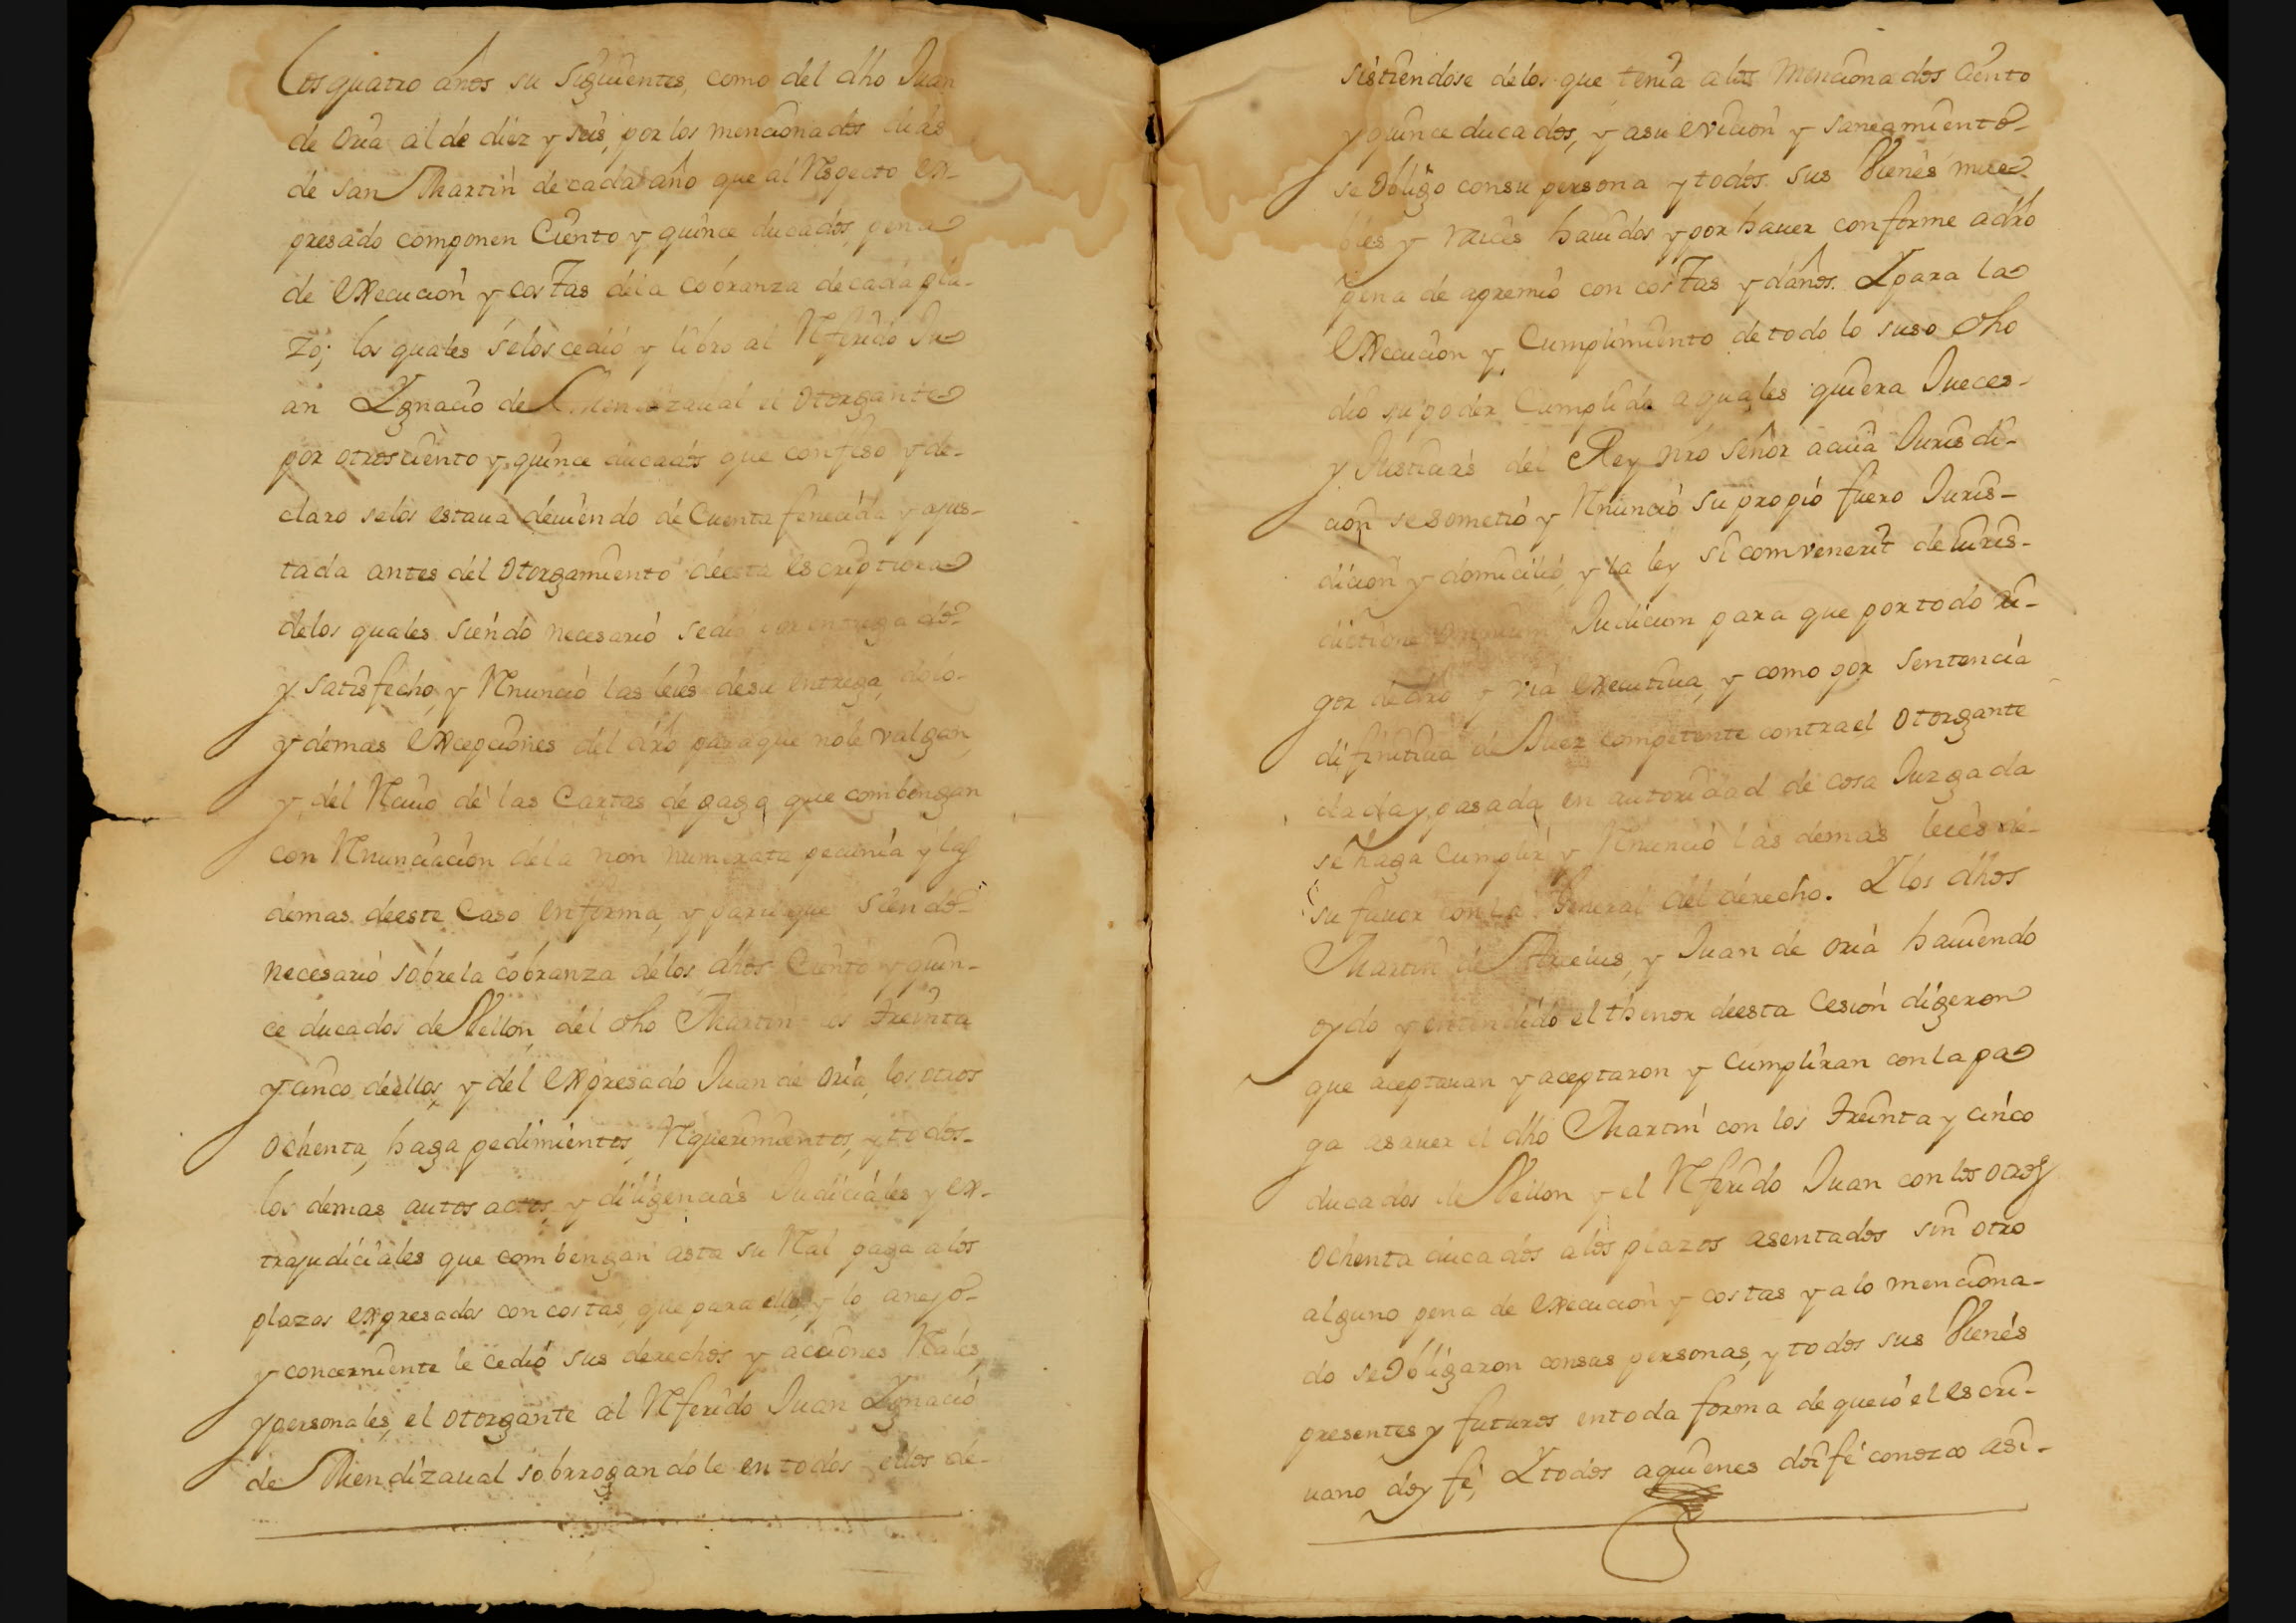 Los quatro años su siguientes, como del dho Juan
de oria al de diez y seis, por los mencionados dias
de san Martin de cada año que al Respecto ex-
presado componen Ciento y quince ducados, pena
de execucion y costas de la cobranza de cada pla-
zo; los quales se los cedió y libro al Referido Ju-
an Ignacio de Mendizaual el otorgante
por otros ciento y quince ducados que confeso y de-
claro se los estaua deuiendo de Cuenta fenecida y ajus-
tada antes del otorgamiento de esta escriptura
de los quales siendo necesario se dio por entregado
y satisfecho, y Renunció las leies de su entrega, dolo
y demas excepciones del dro para que no le valgan,
y del Reciuo de las Cartas de paga que combengan
con Renunciacion de la non numerata pecunia y las
demas de este Caso en forma, y para que siendo
necesario sobre la cobranza de los dhos Ciento y quin-
ce ducados de Vellon, del dho Martin los treinta
y cinco de ellos, y del expresado Juan de oria, los otros
ochenta, haga pedimientos, Requerimientos, y todos
los demas autos actos, y diligencias Judiciales y ex-
trajudiciales que combengan asta su Real paga a los
plazos expresados con costas, que para ello, y lo anejo
y concerniente le cedió sus derechos y acciones Reales,
y personales, el otorgante al Referido Juan Ignacio
de Mendizaual sobrrogandole en todos ellos de-
sistiendose de los que tenia a los mencionados ciento
y quince ducados, y a su eviccion y saneamiento
se obligo con su persona y todos sus Vienes mue-
bles y raices hauidos y por hauer conforme a dro
pena de apremio con costas y daños. Y para la
execucion y Cumplimiento de todo lo suso dho
dio su poder Cumplido a quales quiera Jueces
y Justicias del Rey nro señor a cuia Jurisdi-
cion se sometió y Renunció su propio fuero Juris-
dicion y domicilio, y la ley si comvenerit de iuris-
dictione omnium Judicum para que por todo ri-
gor de dro y via executiua, y como por sentencia
difinitiua de Juez competente contra el otorgante
dada y pasada en autoridad de cosa Juzgada
se haga Cumplir y Renunció las demas leies de
su fauor con la General del derecho. Y los dhos
Martin de Arcelus, y Juan de oria hauiendo
oydo y entendido el thenor de esta Cesion digeron
que aceptauan y aceptaron y Cumpliran con la pa
ga asauer el dho Martin con los treinta y cinco
ducados de Vellon y el Referido Juan con los otros
ochenta ducados a los plazos asentados sin otro
alguno pena de execucion y costas y a lo menciona-
do se obligaron con sus personas, y todos sus Vienes
presentes y futuros en toda forma de que io el escri-
uano doy fe, Y todos a quienes doi fe conozco asi-